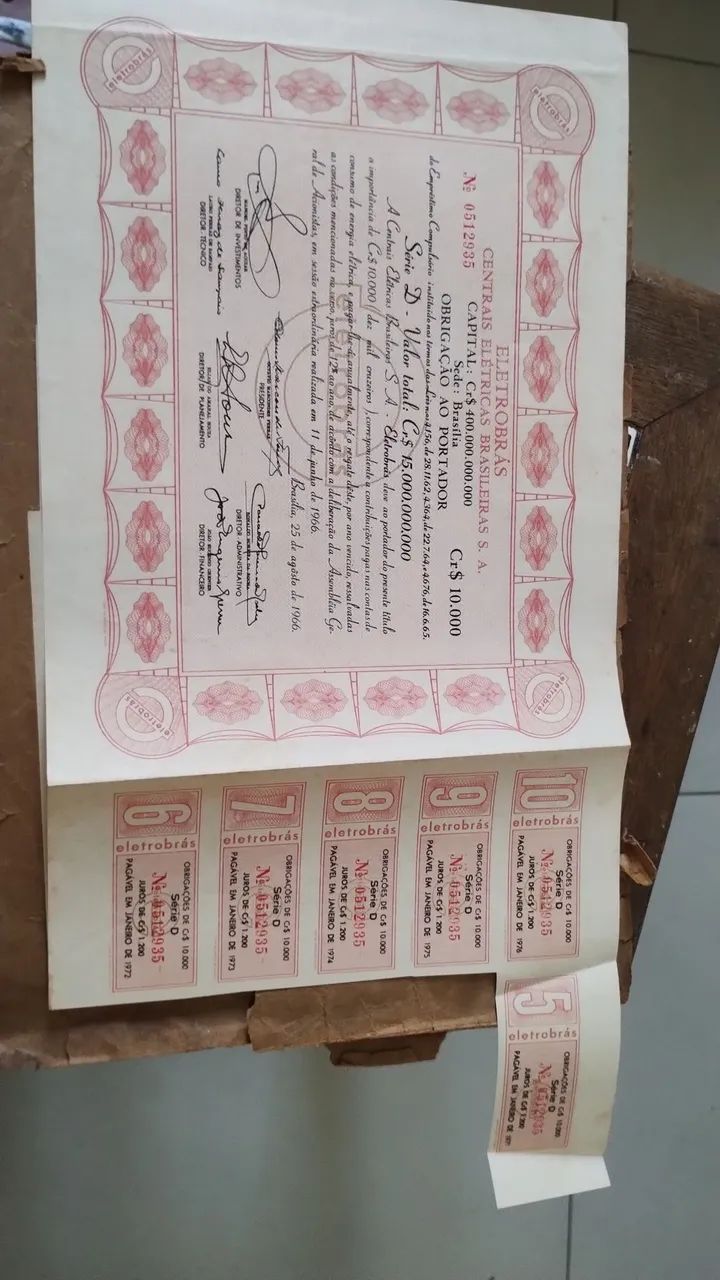 eletrobrás
eletrobrás
ELETROBRÁS
CENTRAIS ELÉTRICAS BRASILEIRAS S. A.
CAPITAL: Cr$ 400.000.000.000
Sede: Brasília
Nº 0512935
OBRIGAÇÃO AO PORTADOR
Cr$ 10.000
do Empréstimo Compulsório instituído nos termos das Leis nos 4.156, de 28.11.62, 4.364, de 22.7.64, e 4.676, de 16.6.65.
Série D - Valor total: Cr$ 15.000.000.000
A Centrais Elétricas Brasileiras S. A. - Eletrobrás deve ao portador do presente título
a importância de Cr$ 10.000 ( dez mil cruzeiros ), correspondente a contribuições pagas nas contas de
consumo de energia elétrica, e pagar-lhe-á anualmente, até o resgate deste, por ano vencido, ressalvadas
as condições mencionadas no verso, juros de 12% ao ano, de acôrdo com a deliberação da Assembléia Ge-
ral de Acionistas, em sessão extraordinária realizada em 11 de junho de 1966.
Brasília, 25 de agôsto de 1966.
eletrobrás
PRESIDENTE
DIRETOR ADMINISTRATIVO
DIRETOR DE INVESTIMENTOS
DIRETOR TÉCNICO
DIRETOR DE PLANEJAMENTO
DIRETOR FINANCEIRO
eletrobrás
eletrobrás
10
eletrobrás
OBRIGAÇÕES DE Cr$ 10.000
Série D
Nº 0512935
JUROS DE Cr$ 1.200
PAGÁVEL EM JANEIRO DE 1976
9
eletrobrás
OBRIGAÇÕES DE Cr$ 10.000
Série D
Nº 0512935
JUROS DE Cr$ 1.200
PAGÁVEL EM JANEIRO DE 1975
8
eletrobrás
OBRIGAÇÕES DE Cr$ 10.000
Série D
Nº 0512935
JUROS DE Cr$ 1.200
PAGÁVEL EM JANEIRO DE 1974
7
eletrobrás
OBRIGAÇÕES DE Cr$ 10.000
Série D
Nº 0512935
JUROS DE Cr$ 1.200
PAGÁVEL EM JANEIRO DE 1973
6
eletrobrás
OBRIGAÇÕES DE Cr$ 10.000
Série D
Nº 0512935
JUROS DE Cr$ 1.200
PAGÁVEL EM JANEIRO DE 1972
5
eletrobrás
OBRIGAÇÕES DE Cr$ 10.000
Série D
Nº 0512935
JUROS DE Cr$ 1.200
PAGÁVEL EM JANEIRO DE 1971